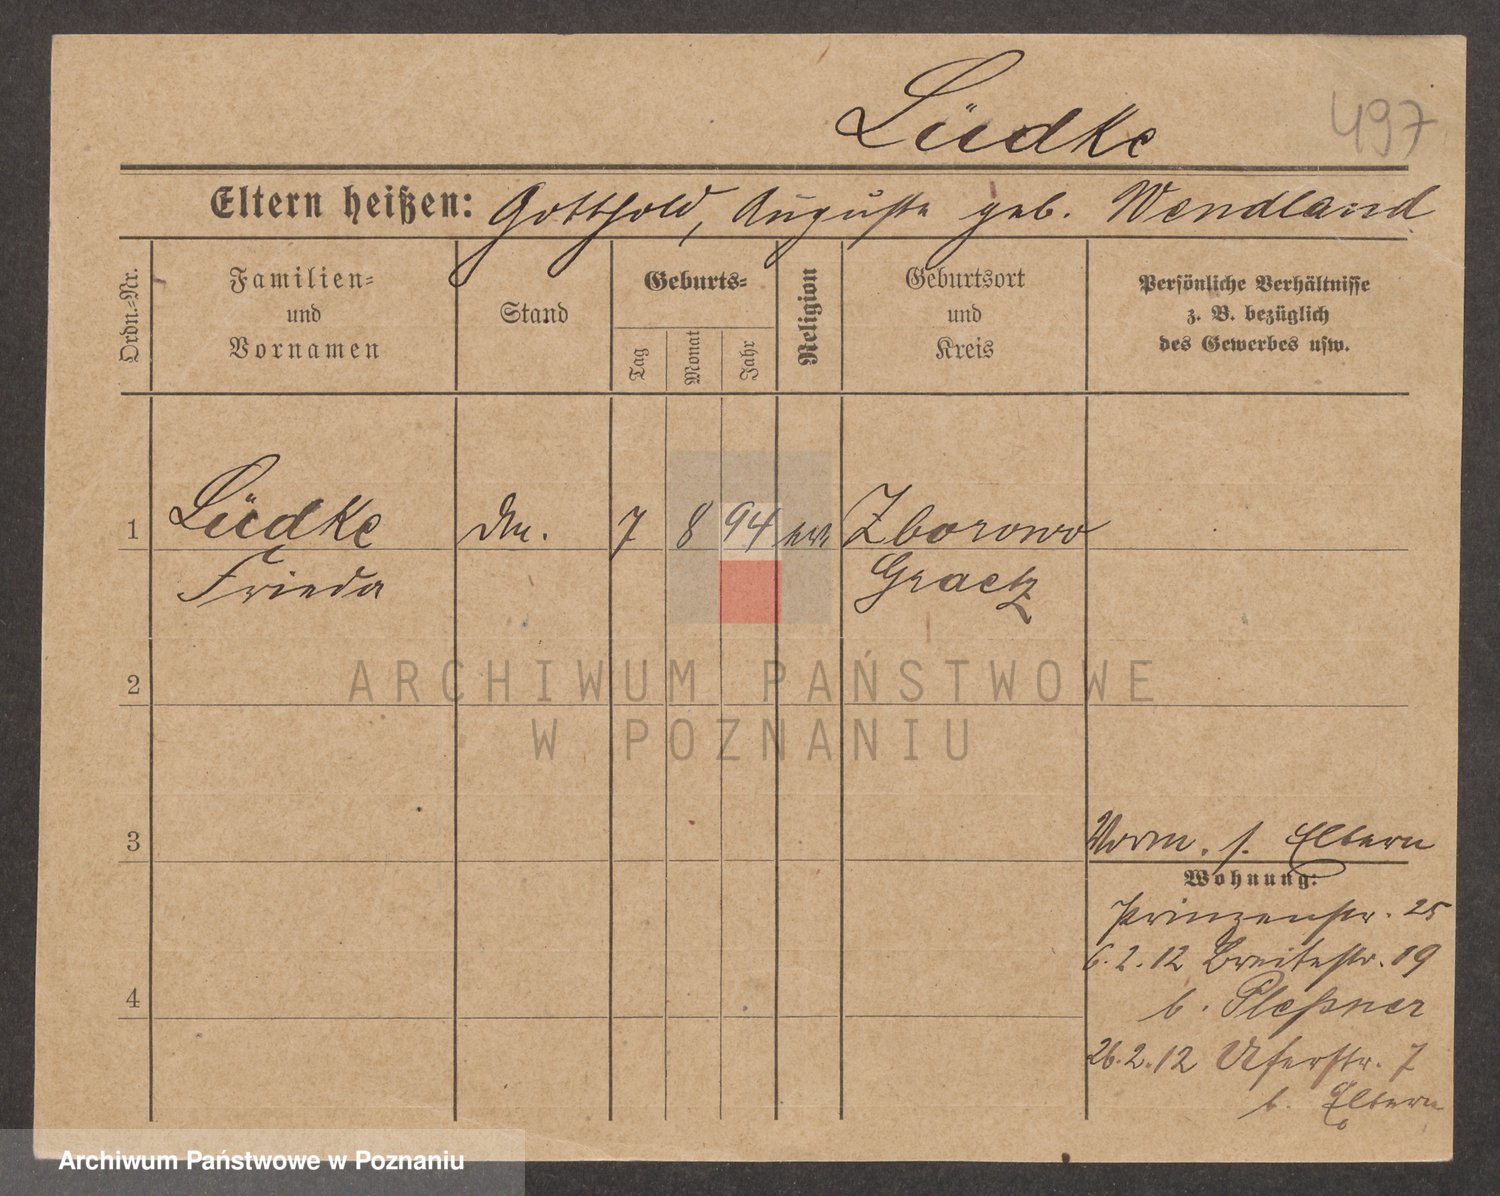 Lüdke
497
Eltern heißen: Gotthold, Auguste geb. Wendland
Ordn.-Nr.
Familien-
und
Vornamen
Stand
Geburts-
Tag
Monat
Jahr
Religion
Geburtsort
und
Kreis
Persönliche Verhältnisse
z. B. bezüglich
des Gewerbes usw.
1 Lüdke 7 8 94 Zborowo
Frieda Graetz
2
3
Vorm. s. Eltern
Wohnung:
Prinzenstr. 25
6.2.12 Breitestr. 19
b. Pleßner
4
26.2.12 Uferstr. 7
b. Eltern
ARCHIWUM PAŃSTWOWE
W POZNANIU
Archiwum Państwowe w Poznaniu